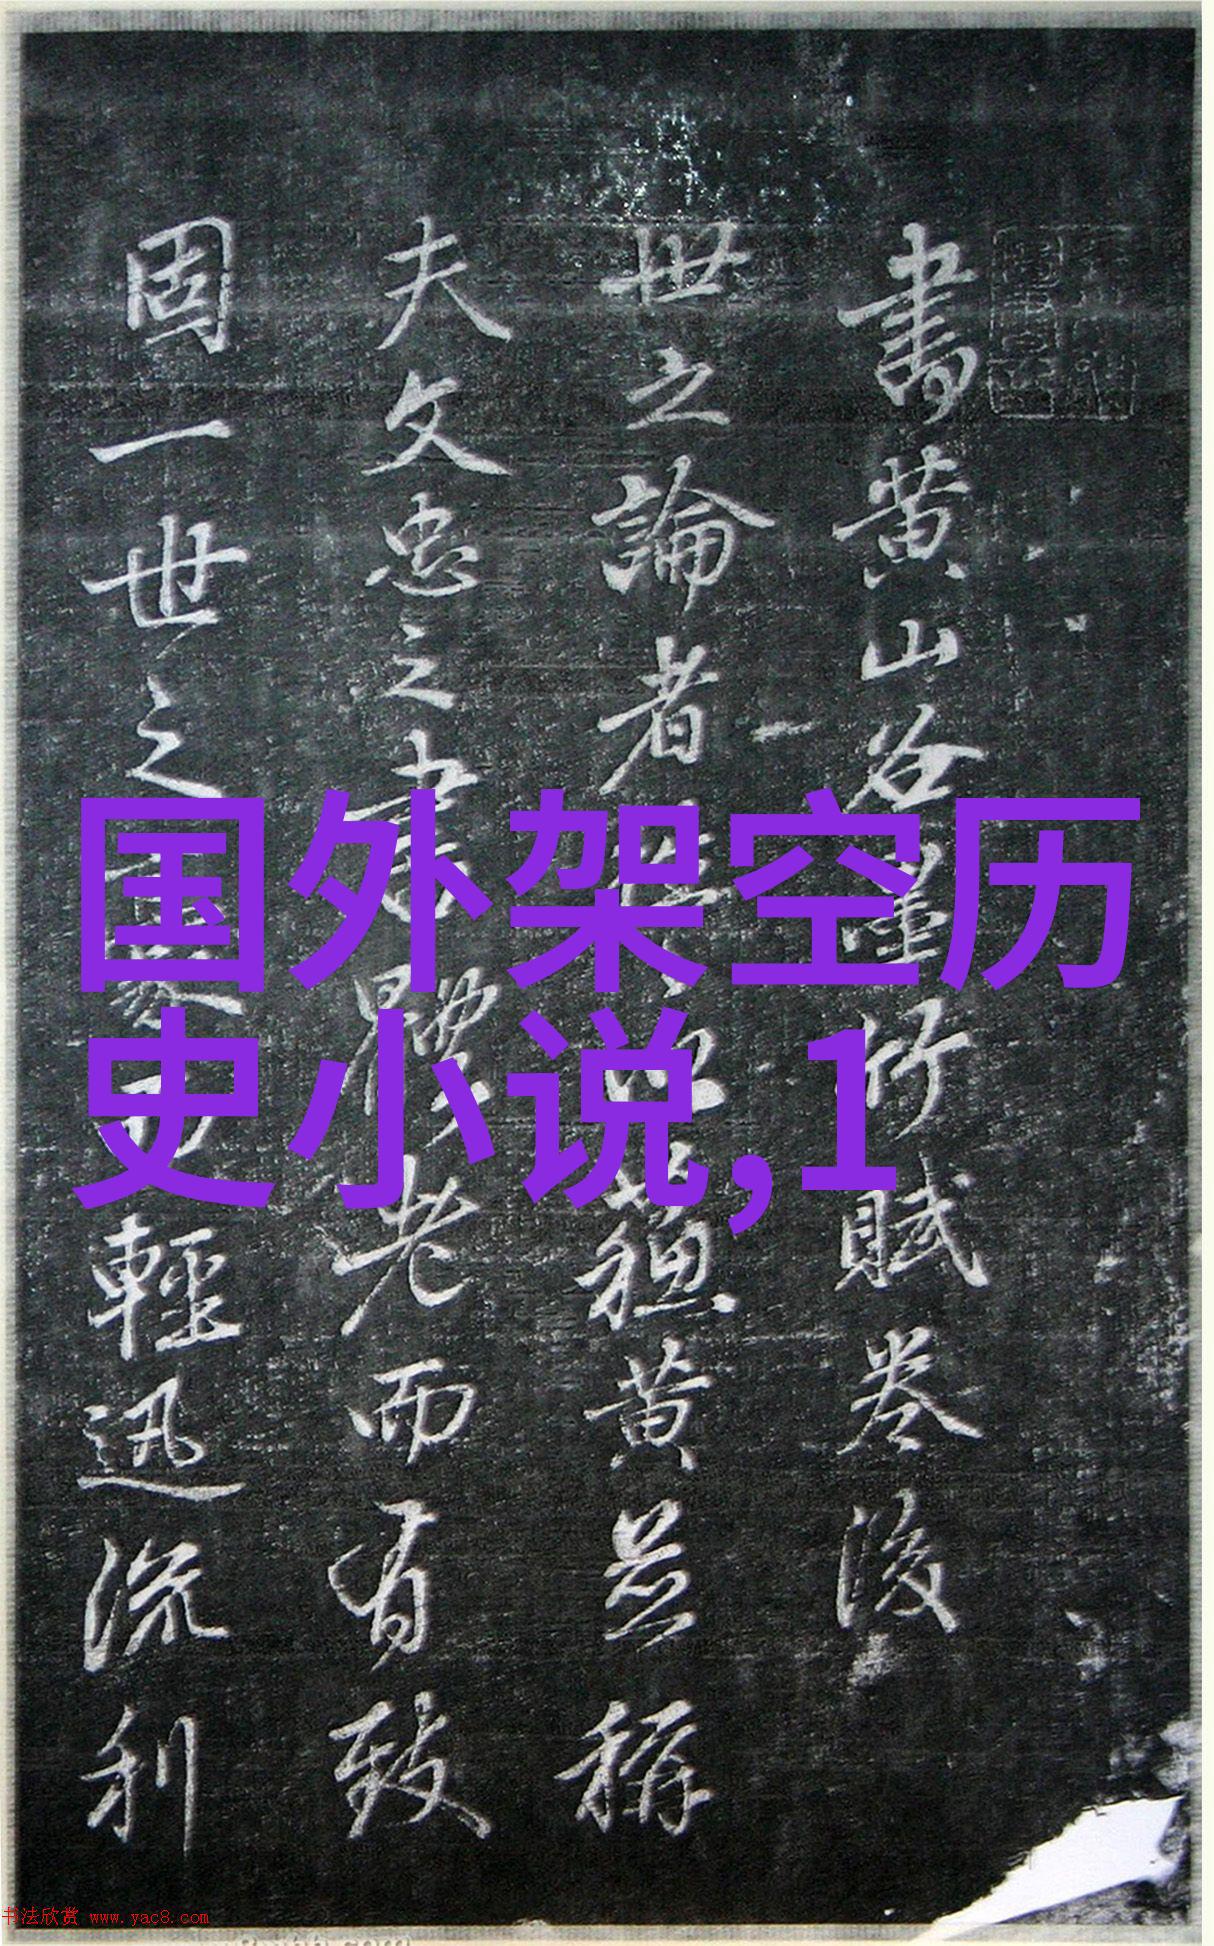 書黄山谷竹賦卷後
世之論者蘓黄並稱
夫文忠之書體老而有致
固一世之輕迅流利
国外架空历
史小说,1
书法欣赏 www.yac8.com